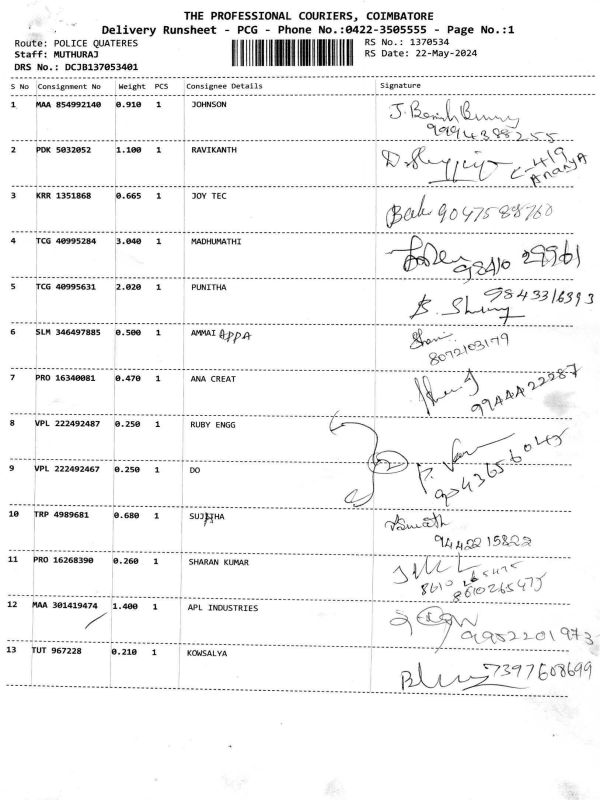 THE PROFESSIONAL COURIERS, COIMBATORE
Delivery Runsheet - PCG - Phone No.:0422-3505555 - Page No.:1
Route: POLICE QUATERES RS No.: 1370534
Staff: MUTHURAJ RS Date: 22-May-2024
DRS No.: DCJB137053401
S No Consignment No Weight PCS Consignee Details Signature
1 MAA 854992140 0.910 1 JOHNSON
9994388255
2 PDK 5032052 1.100 1 RAVIKANTH
C-419
Ananya
3 KRR 1351868 0.665 1 JOY TEC
9047588760
4 TCG 40995284 3.040 1 MADHUMATHI
98410 29961
5 TCG 40995631 2.020 1 PUNITHA
9843316393
6 SLM 346497885 0.500 1 AMMAI APPA
8072103179
7 PRO 16340081 0.470 1 ANA CREAT
9944422287
8 VPL 222492487 0.250 1 RUBY ENGG
9 VPL 222492467 0.250 1 DO
2
9043656045
10 TRP 4989681 0.680 1 SUJITHA
9442215822
11 PRO 16268390 0.260 1 SHARAN KUMAR
8610265475
8610265475
12 MAA 301419474 1.400 1 APL INDUSTRIES
9952201973
13 TUT 967228 0.210 1 KOWSALYA
7397608699